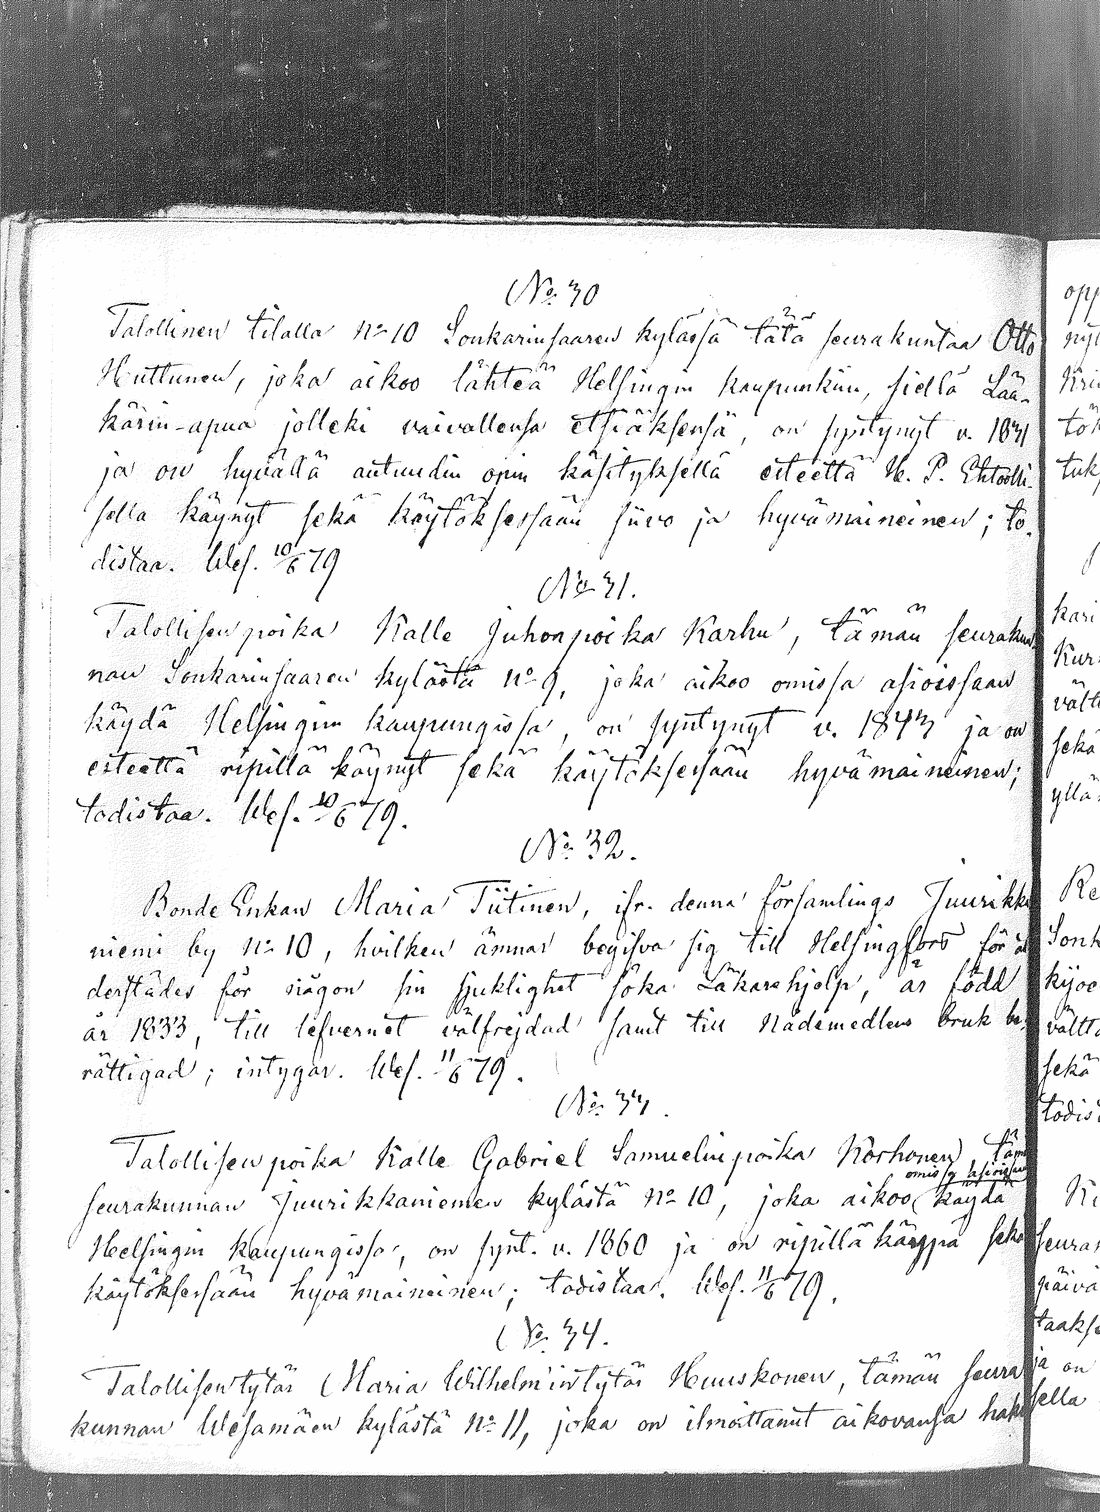 No 30
Talollinen tilalla no 10 Sonkarinsaaren kylässä tätä seurakuntaa Otto
Huttunen, joka aikoo lähteä Helsingin kaupunkiin, siellä Lää-
kärin-apua jolleki vaivallensa etsiäksensä, on syntynyt v. 1831
ja on hyvällä autuudin opin käsityksellä esteettä H. P. Ehtoolli-
sella käynyt sekä käytöksessään siivo ja hyvämaineinen; to-
distaa. Wes. 10/6 79
No 31.
Talollisen poika Kalle Juhonpoika Karhu, tämän seurakun
nan Sonkarinsaaren kylästä no 9, joka aikoo omissa asioissaan
käydä Helsingin kaupungissa, on syntynyt v. 1843 ja on
esteettä ripillä käynyt sekä käytöksessään hyvämaineinen;
todistaa. Wes. 10/6 79.
No 32.
Bonde Enkan Maria Tiitinen, ifr. denna församlings Juurikka
niemi by no 10, hvilken ämnar begifva sig till Helsingfors för at
derstädes för någon sin sjuklighet söka Läkarehjelp, är född
år 1833, till lefvernet välfrejdad samt till Nådemedlens bruk be-
rättigad; intygar. Wes. 11/6 79.
No 33.
Talollisen poika Kalle Gabriel Samuelinpoika Korhonen, täm
omissa asioissaan
seurakunnan Juurikkaniemen kylästä no 10, joka aikoo käydä
Helsingin kaupungissa, on synt. v. 1860 ja on ripillä käyppä sekä
käytöksessään hyvämaineinen; todistaa. Wes. 11/6 79.
No 34.
Talollisen tytär Maria Wilhelmintytär Huuskonen, tämän seura
kunnan Wesamäen kylästä no 11, joka on ilmoittanut aikovansa hake
opp
nyt
Kri
tök
tuk
kari
Kur
vältt
sekä
yllä
Re
Sonk
kijoe
vältta
sekä
todis
Ki
seura
päivä
taaks
ja on
sella